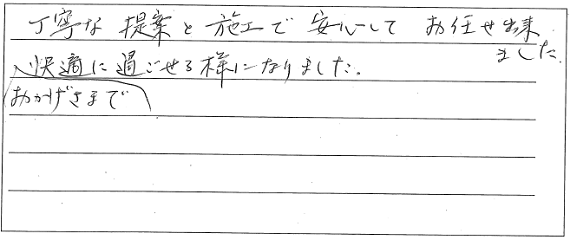 丁寧な提案と施工で安心してお任せ出来
ました。
快適に過ごせる様になりました。
おかげさまで